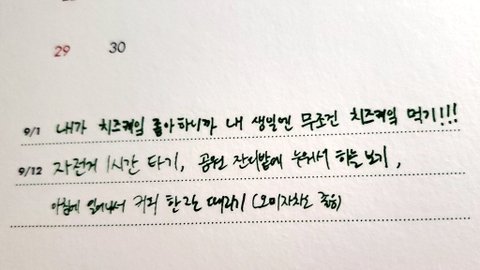 29 30
9/1 내가 치즈케잌 좋아하니까 내 생일엔 무조건 치즈케잌 먹기!!!
9/12 자전거 1시간 타기, 공원 잔디밭에 누워서 하늘 보기,
아침에 일어나서 커피 한잔 때리기 (오미자차도 좋음)